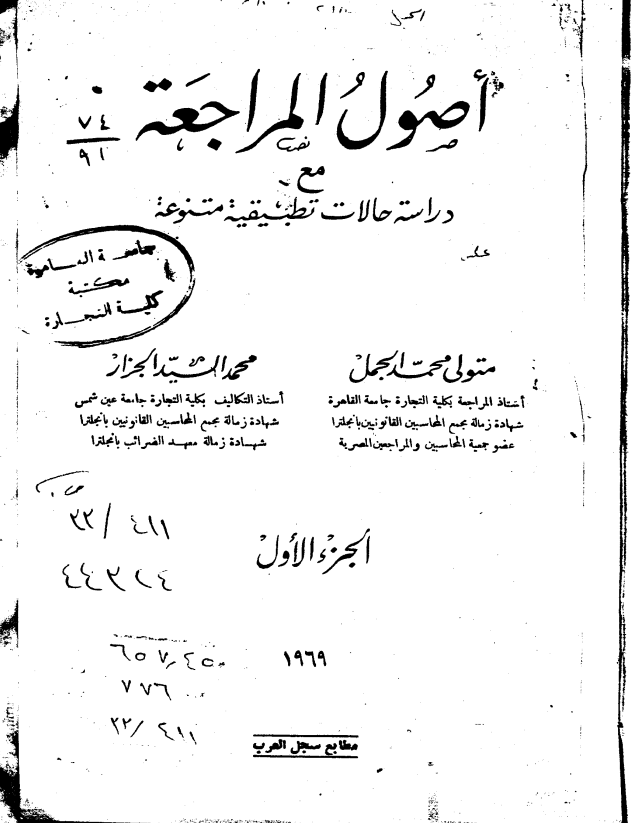 أصول المراجعة
٧٤
٩١
مع
دراسة حالات تطبيقية متنوعة
جامعة القاهرة
مكتبة
كلية التجارة
متولى محمد الجمل
أستاذ المراجعة بكلية التجارة جامعة القاهرة
شهادة زمالة مجمع المحاسبين القانونيين بانجلترا
عضو جمعية المحاسبين والمراجعين المصرية
محمد السيد الجزار
أستاذ التكاليف بكلية التجارة جامعة عين شمس
شهادة زمالة مجمع المحاسبين القانونيين بانجلترا
شهادة زمالة معهد الضرائب بانجلترا
٤١١ / ٢٢
الجزء الأول
١٩٦٩
٦٥٧٫٤٥
٧٧٦
٤١١ / ٢٢
مطابع سجل العرب